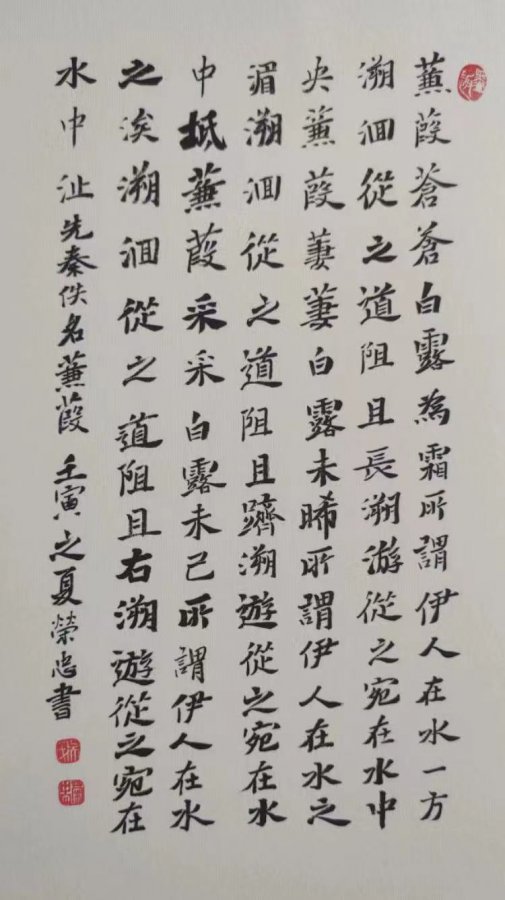 蒹葭蒼蒼白露為霜所謂伊人在水一方
溯洄從之道阻且長溯游從之宛在水中
央蒹葭萋萋白露未晞所謂伊人在水之
湄溯洄從之道阻且躋溯遊從之宛在水
中坻蒹葭采采白露未已所謂伊人在水
之涘溯洄從之道阻且右溯遊從之宛在
水中沚先秦佚名蒹葭 壬寅之夏榮忠書